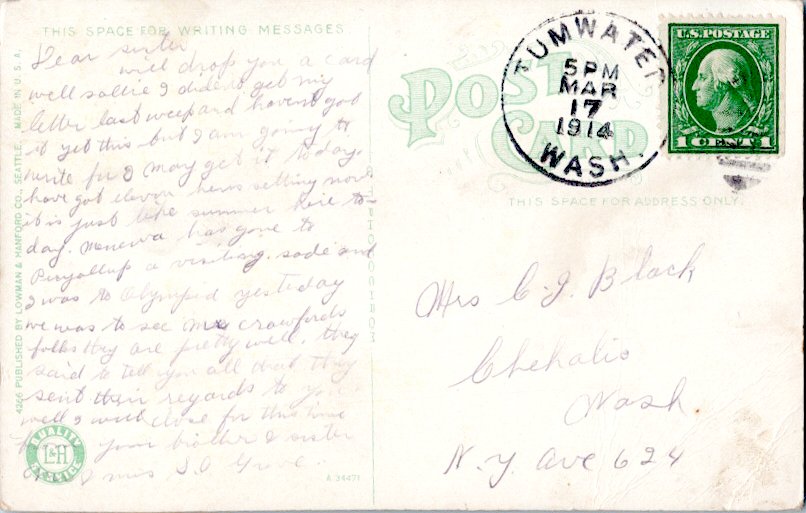 THIS SPACE FOR WRITING MESSAGES
Dear sister
will drop you a card
well sallie I did get my
letter last week and havent got
it yet this but I am going to
write for I may get it today.
have got eleven hens setting now
it is just like summer here to-
day. has gone to
Puyallup a visiting. sade and
I was to Olympia yesterday
we was to see crawfords
folks they are pretty well. they
said to tell you all that they
sent their regards to you
well I will close for this time
your brother & sister
mrs S.O. Grove.
4266 PUBLISHED BY LOWMAN & HANFORD CO., SEATTLE. MADE IN U.S.A.
QUALITY
L&H
A 34471
POST CARD
THIS SPACE FOR ADDRESS ONLY.
TUMWATER
5PM
MAR
17
1914
WASH.
U.S. POSTAGE
1 CENT 1
Mrs C.J. Black
Chehalis
Wash
N.Y. Ave 624